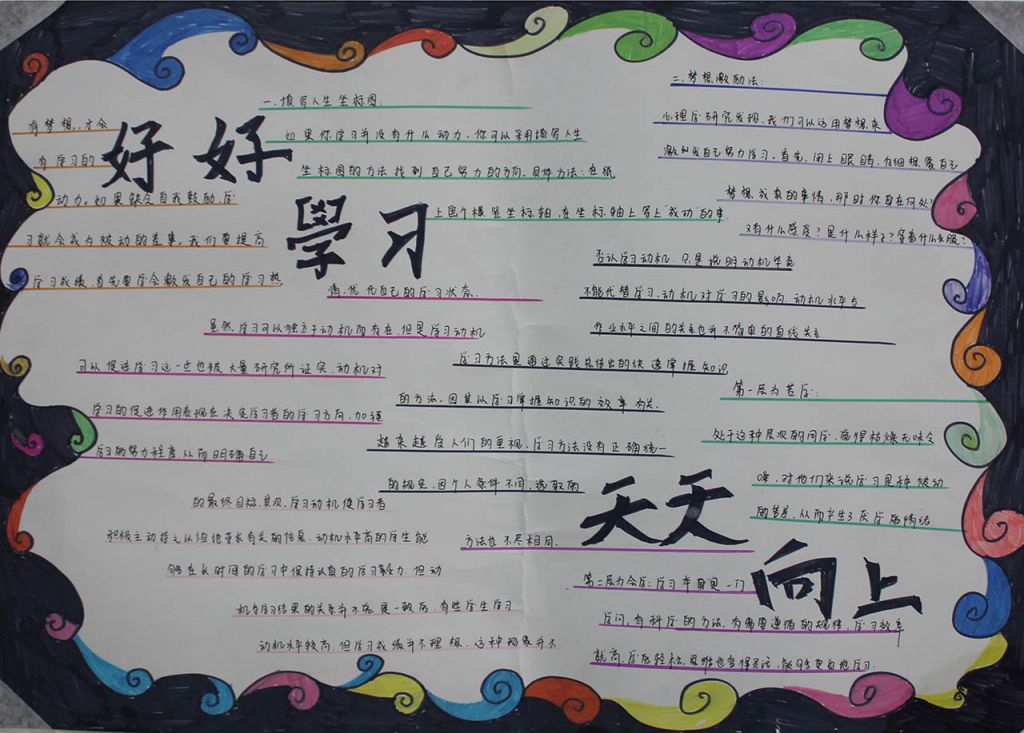 有梦想,才会
有学习的
动力。如果缺乏自我鼓励,学
习就会成为被动的差事。我们要提高
学习成绩,首先要学会激发自己的学习热
好好
學习
一.填写人生坐标图.
如果你学习并没有什么动力,你可以采用填写人生
坐标图的方法找到自己努力的方向.具体方法:在纸
上画个横竖坐标轴,在坐标轴上写上“成功”的事
情,优化自己的学习状态.
虽然学习可以独立于动机而存在,但是学习动机
可以促进学习这一点也被大量研究所证实.动机对
学习的促进作用表现在决定学习者的学习方向.加强
学习的努力程度从而明确自己
的最终目标.其次.学习动机使学习者
积极主动
够在长时间的学习中保持认真的学习 但动
机与学习结果的关系并不总是一致的,有些学生学习
动机水平较高.但学习成绩并不理想.这种现象并不
二.梦想激励法:
心理学研究发现,我们可以运用梦想来
激发自己努力学习.首先,闭上眼睛,仔细想象自己
梦想成真的事情,那时你自在何处?
又有什么感受?是什么样子?穿着什么衣服?
否认学习动机.只是说明动机毕竟
不能代替学习,动机对学习的影响,动机水平与
作业水平之间的关系也并不简单的直线关系
学习方法是通过实践总结出的快速掌握知识
的方法.因其以学习掌握知识的效率有关.
越来越受人们的重视.学习方法没有正确统一
的规定.因个人条件不同,选取的
方法也不尽相同.
第一层为苦学:
处于这种层次的同学,觉得枯燥无味
对他们来说学习是种被动
的苦差,从而产生了厌学的情绪
天天
向上
第二层为会学:学习本身是一门
学问,有科学的方法.有需要遵循的规律.学习效率
就高.学的轻松.思维也变得灵活,能够